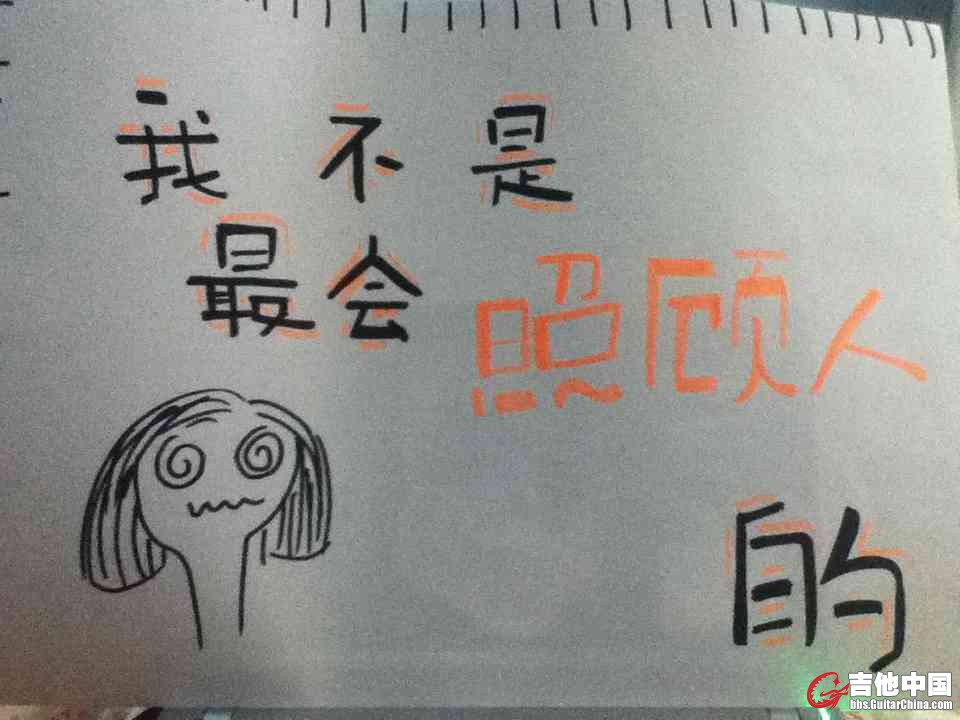 我不是
最会照顾人
的
吉他中国
bbs.GuitarChina.com